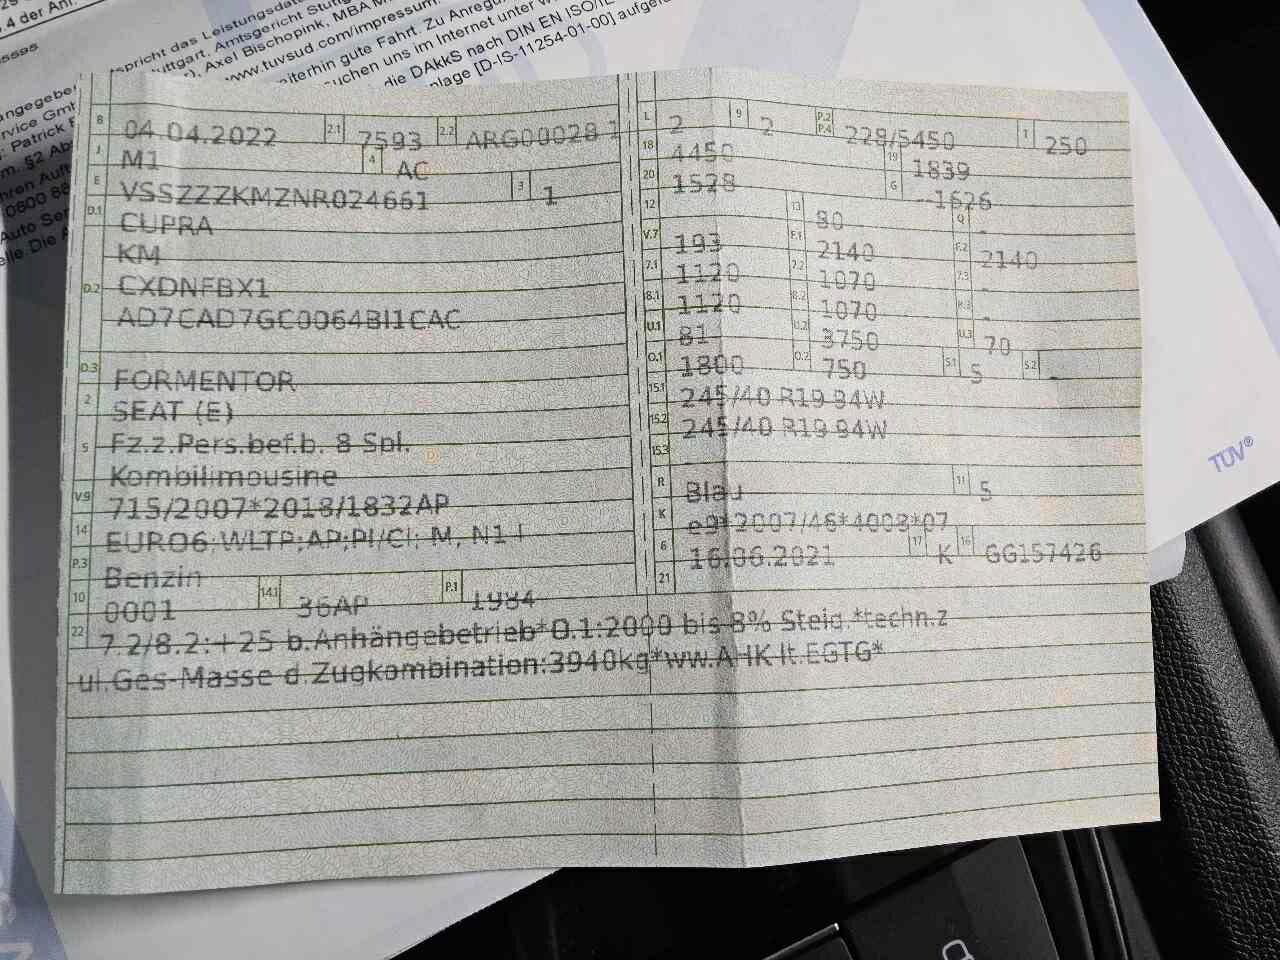 .4 der Anl.
spricht das Leistungsdat
uttgart, Amtsgericht Stuttg
), Axel Bischopink, MBA M
www.tuvsud.com/impressum
iterhin gute Fahrt. Zu Anregu
uchen uns im Internet unter w
die DAkkS nach DIN EN ISO/IE
nlage [D-IS-11254-01-00] aufgef
angegebe
rvice Gmb
: Patrick F
m. §2 Ab
hren Auft
0800 88
Auto Ser
elle. Die A
B 04.04.2022 2.1 7593 2.2 ARG00028 1
J M1 4 AC
E VSSZZZKMZNR024661 3 1
D.1 CUPRA
KM
D.2 CXDNFBX1
AD7CAD7GC0064BI1CAC
D.3 FORMENTOR
2 SEAT (E)
5 Fz.z.Pers.bef.b. 8 Spl.
Kombilimousine
V.9 715/2007*2018/1832AP
14 EURO6;WLTP;AP;PI/CI; M, N1 I
P.3 Benzin
10 0001 14.1 36AP P.1 1984
L 2 9 2 P.2 P.4 228/5450 T 250
18 4450 19 1839
20 1528 G --1626
12 13 80 Q -
V.7 193 F.1 2140 F.2 2140
7.1 1120 7.2 1070 7.3 -
8.1 1120 8.2 1070 8.3 -
U.1 81 U.2 3750 U.3 70
O.1 1800 O.2 750 S.1 5 S.2 -
15.1 245/40 R19 94W
15.2 245/40 R19 94W
15.3
R Blau 11 5
K e9*2007/46*4008*07
6 16.06.2021 17 K 16 GG157426
21
22 7.2/8.2:+25 b.Anhängebetrieb*O.1:2000 bis 8% Steig.*techn.z
ul.Ges-Masse d.Zugkombination:3940kg*ww.AHK lt.EGTG*
TÜV®